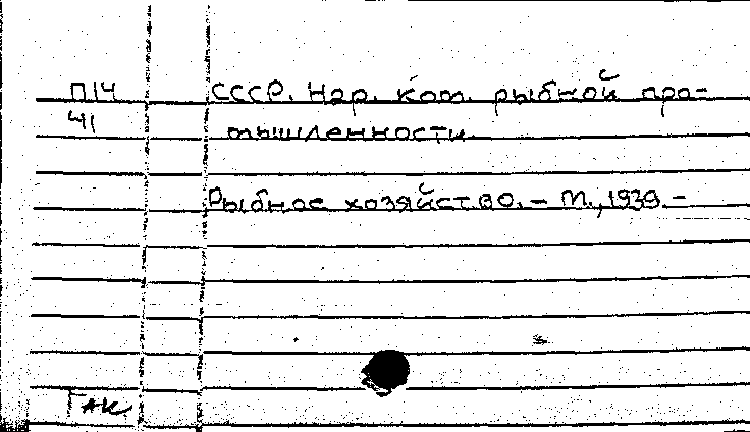 П14 СССР. Нар. ком. рыбной про-
41 мышленности.
Рыбное хозяйство. – М., 1939. –
Гак